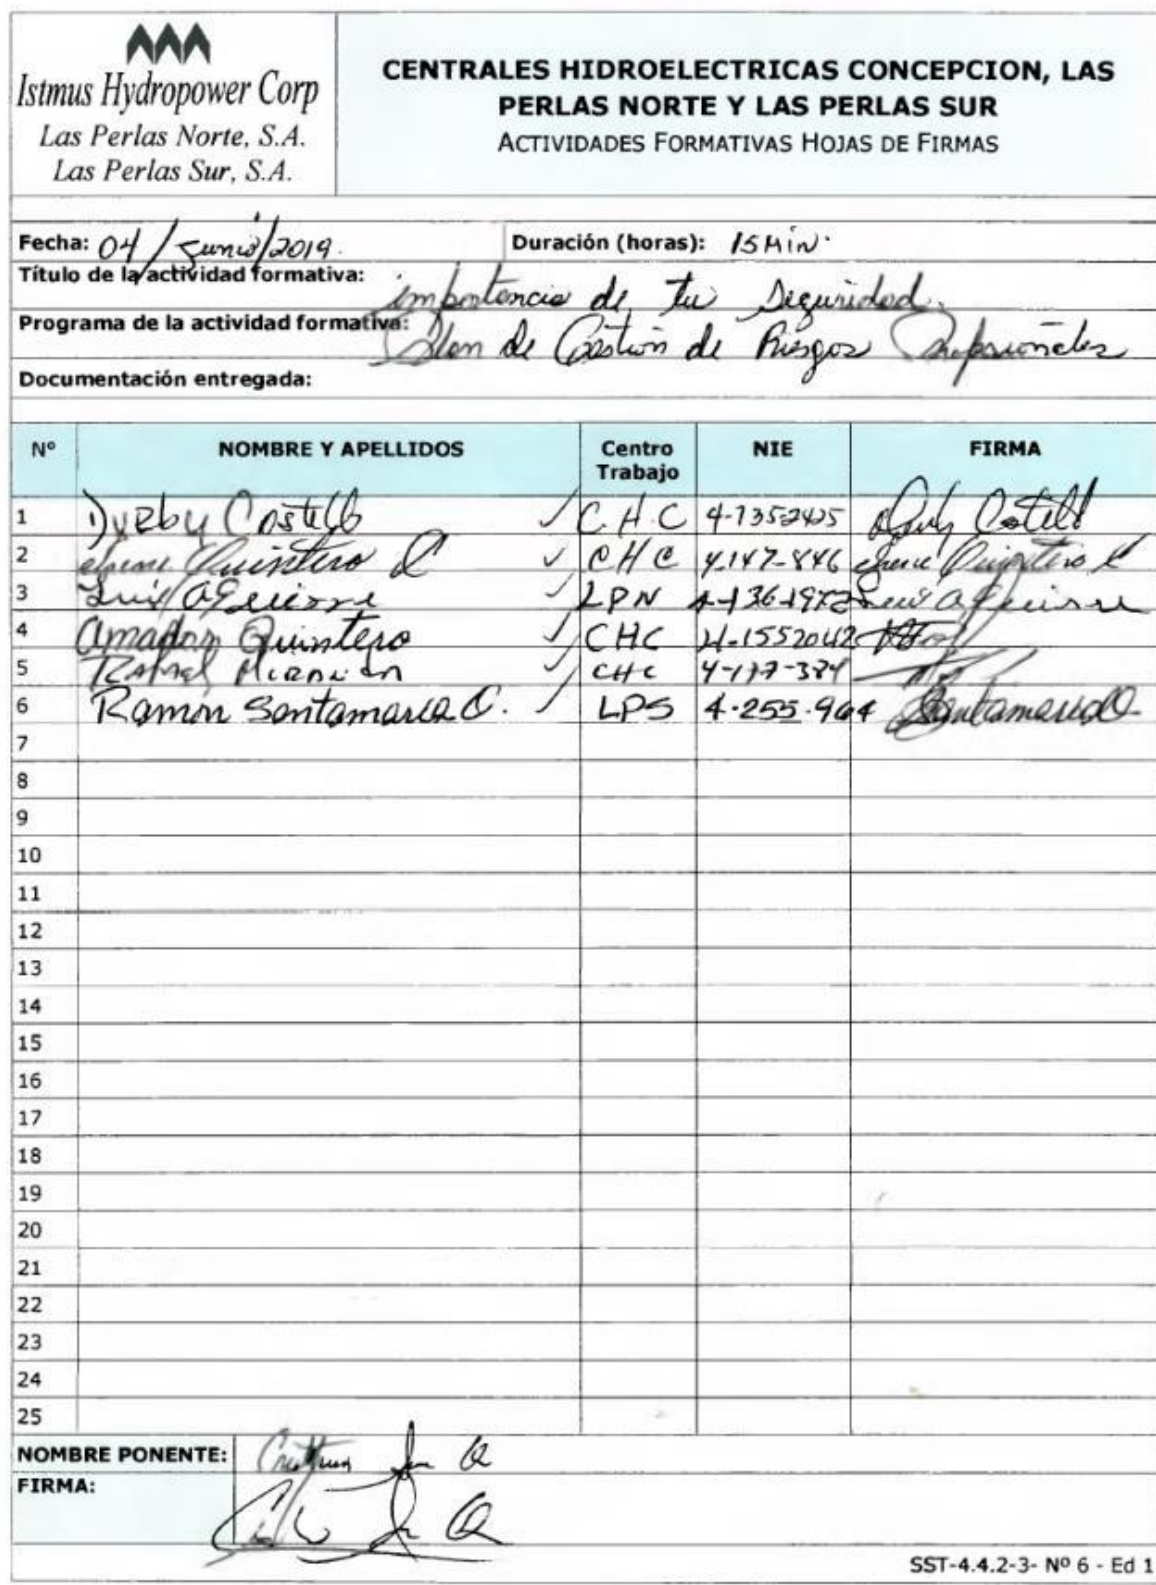 Istmus Hydropower Corp
Las Perlas Norte, S.A.
Las Perlas Sur, S.A.
CENTRALES HIDROELECTRICAS CONCEPCION, LAS
PERLAS NORTE Y LAS PERLAS SUR
ACTIVIDADES FORMATIVAS HOJAS DE FIRMAS
Fecha: 04/Junio/2019. Duración (horas): 15 Min.
Título de la actividad formativa: importancia de tu Seguridad.
Programa de la actividad formativa: Plan de Gestión de Riesgos Profesionales
Documentación entregada:
Nº NOMBRE Y APELLIDOS Centro Trabajo NIE FIRMA
1 Costello ✓ C.H.C 4-
2 Quintero ✓ CHC 4-147-846 Quintero
3 Luis Aguirre ✓ LPN Luis Aguirre
4 Amador Quintero ✓ CHC
5 Rafael ✓ CHC
6 Ramon Santamaria C. ✓ LPS 4-255-964 Santamaria
7
8
9
10
11
12
13
14
15
16
17
18
19
20
21
22
23
24
25
NOMBRE PONENTE:
FIRMA:
SST-4.4.2-3- Nº 6 - Ed 1